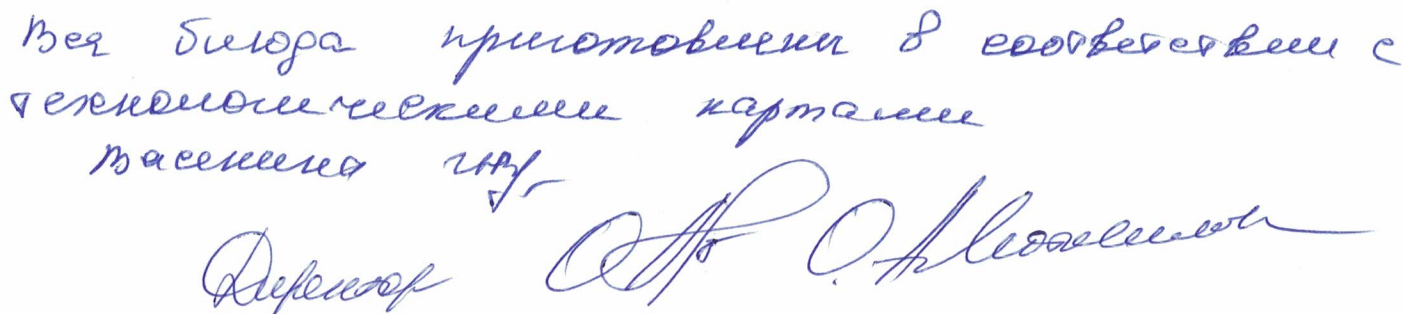 Вся блюда приготовлены в соответствии с
технологическими картами
Васенина
Директор